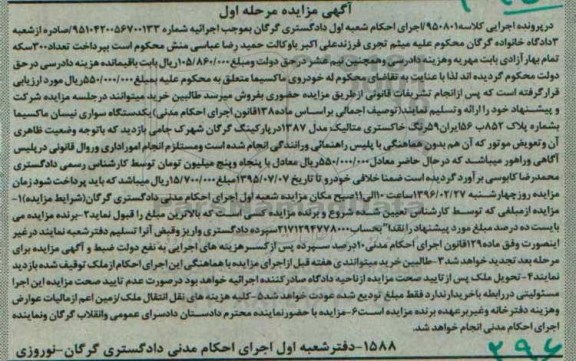 آگهی مزایده مرحله اول
درپرونده اجرایی کلاسه۹۵۰۸۰۱/اجرای احکام شعبه اول دادگستری گرگان بموجب اجرائیه شماره ۹۵۱۰۴۲۰۰۵۶۷۰۰۱۳۳/صادره ازشعبه
۳دادگاه خانواده گرگان محکوم علیه میثم تجری فرزندعلی اکبر باوکالت حمید رضا عباسی منش محکوم است بپرداخت تعداد۳۰۰سکه
تمام بهار آزادی بابت مهریه وهزینه دادرسی وهمچنین نیم عشر درحق دولت ومبلغ۱۰۵/۸۶۰/۰۰۰ریال بابت باقیمانده هزینه دادرسی درحق
دولت محکوم گردیده اند لذا با عنایت به تقاضای محکوم له خودروی ماکسیما متعلق به محکوم علیه بمبلغ۵۵۰/۰۰۰/۰۰۰ریال مورد ارزیابی
قرارگرفته است که پس ازانجام تشریفات قانونی ازطریق مزایده حضوری بفروش میرسد طالبین خرید میتوانند درجلسه مزایده شرکت
و پیشنهاد خود را ارائه و تسلیم نمایند(توصیف اجمالی براساس ماده۱۳۸قانون اجرای احکام مدنی)یکدستگاه سواری نیسان ماکسیما
بشماره پلاک ۸۵۲ب ۱۵۶یران۵۹رنگ خاکستری متالیک مدل ۱۳۸۷درپارکینگ گرگان شهرک جامی بازدید که باتوجه وضعیت ظاهری
آن و تعویض موتور که آن هم بدون هماهنگی با پلیس راهنمائی ورانندگی انجام شده است ومستلزم انجام اموراداری وروال قانونی درپلیس
آگاهی وراهور میباشد که درحال حاضر معادل۵۵۰/۰۰۰/۰۰۰ریال معادل با پنجاه وپنج میلیون تومان توسط کارشناس رسمی دادگستری
محمدرضا کابوسی برآورد گردیده است ضمنا خلافی خودرو تا تاریخ ۱۳۹۵/۰۷/۰۷مبلغ۱۵/۷۰۰/۰۰۰ریال میباشد که باید پرداخت شود زمان
مزایده روزچهارشنبه ۱۳۹۶/۰۲/۲۷ساعت۱۰الی۱۱صبح مکان مزایده شعبه اول اجرای احکام مدنی دادگستری گرگان(شرایط مزایده)۱-
مزایده ازمبلغی که توسط کارشناس تعیین شده شروع و برنده مزایده کسی است که بالاترین مبلغ را قبول نماید۲-برنده مزایده می
بایست ده درصد مبلغ مورد پیشنهاد را نقدا"بحساب۲۱۷۱۲۹۴۷۷۸۰۰۰سپرده دادگستری واریز وقبض آنرا تسلیم دفترشعبه نمایند درغیر
اینصورت وفق ماده۱۲۹قانون اجرای احکام مدنی۱۰درصد سپرده پس ازکسر هزینه های اجرایی به نفع دولت ضبط و آگهی مزایده برای
مرحله بعد تجدید خواهد شد۳-طالبین خرید میتوانندی هفته قبل ازاجرای مزایده با هماهنگی این اجرای احکام ازملک توقیف شده بازدید
نمایند۴-تحویل ملک پس ازتایید صحت مزایده ازناحیه دادگاه صادرکننده اجرائیه خواهد بود درصورت عدم تایید صحت مزایده این اجرا
مسئولیتی دررابطه باخریدارندارد فقط مبلغ تودیع شده عودت خواهد شد۵-کلیه هزینه های نقل انتقال ملک/زمین اعم ازمالیات عوارض
وهزینه دفترخانه وغیربرعهده برنده مزایده است۶-مزایده با حضورنماینده محترم دادستان دادسرای عمومی وانقلاب گرگان ونماینده
اجرای احکام مدنی انجام خواهد شد.
۱۵۸۸-دفترشعبه اول اجرای احکام مدنی دادگستری گرگان-نوروزی
۲۹۶